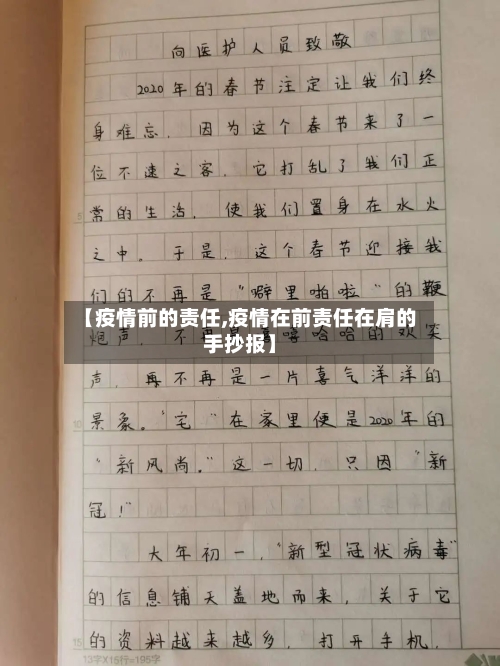 向医护人员致敬
2020年的春节注定让我们终
身难忘.因为这个春节来了一
位不速之客.它打乱了我们正
常的生活.使我们置身在水火
之中.于是.这个春节迎接我
们的不再是"噼里啪啦"的鞭
【疫情前的责任,疫情在前责任在肩的
炮声.不 哈哈的欢笑
手抄报】
声.再不再是一片喜气洋洋的
景象。"宅"在家里便是2020年的
"新风尚。"这一切.只因"新
冠!"
大年初一."新型冠状病毒"
的信息铺天盖地而来,关于它
的资料越来越多.打开手机.
5
10
15
13字X15行=195字